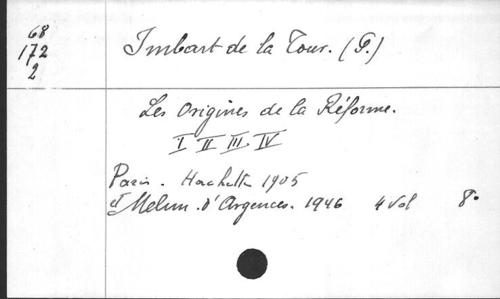 68
172
2
Imbart de la Tour. (P.)
Les Origines de la Réforme.
I II III IV
Paris. Hachette 1905
et Melun. d'Argences. 1946 4 vol 8º